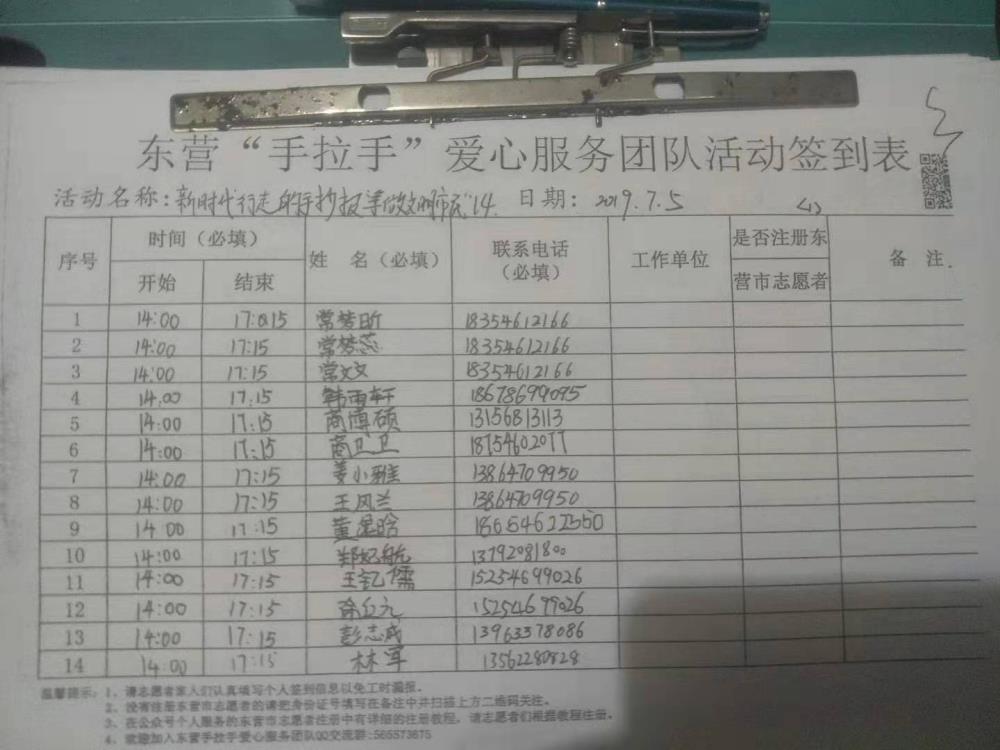 东营“手拉手”爱心服务团队活动签到表
活动名称：新时代行走的手抄报争做文明市民"14. 日期：2019.7.5 <1>
序号 时间（必填） 姓 名（必填） 联系电话（必填） 工作单位 是否注册东营市志愿者 备 注
开始 结束
1 14:00 17:15 常梦昕 18354612166
2 14:00 17:15 常梦蕊 18354612166
3 14:00 17:15 常文文 18354612166
4 14:00 17:15 韩雨轩 18678699095
5 14:00 17:15 商博硕 13156813113
6 14:00 17:15 商卫卫 18754602077
7 14:00 17:15 姜小雅 13864709950
8 14:00 17:15 王凤兰 13864709950
9 14:00 17:15 黄星晗
10 14:00 17:15 郑好航 13792081800
11 14:00 17:15 王钇儒 15254699026
12 14:00 17:15 15254699026
13 14:00 17:15 彭志成 13963378086
14 14:00 17:15 林军 13562280828
温馨提示：1、请志愿者家人们认真填写个人签到信息以免工时漏报。
2、没有注册东营市志愿者的请把身份证号填写在备注中并扫描上方二维码关注。
3、在公众号个人服务的东营市志愿者注册中有详细的注册教程，请志愿者们根据教程注册。
4、欢迎加入东营手拉手爱心服务团队QQ交流群:565573675